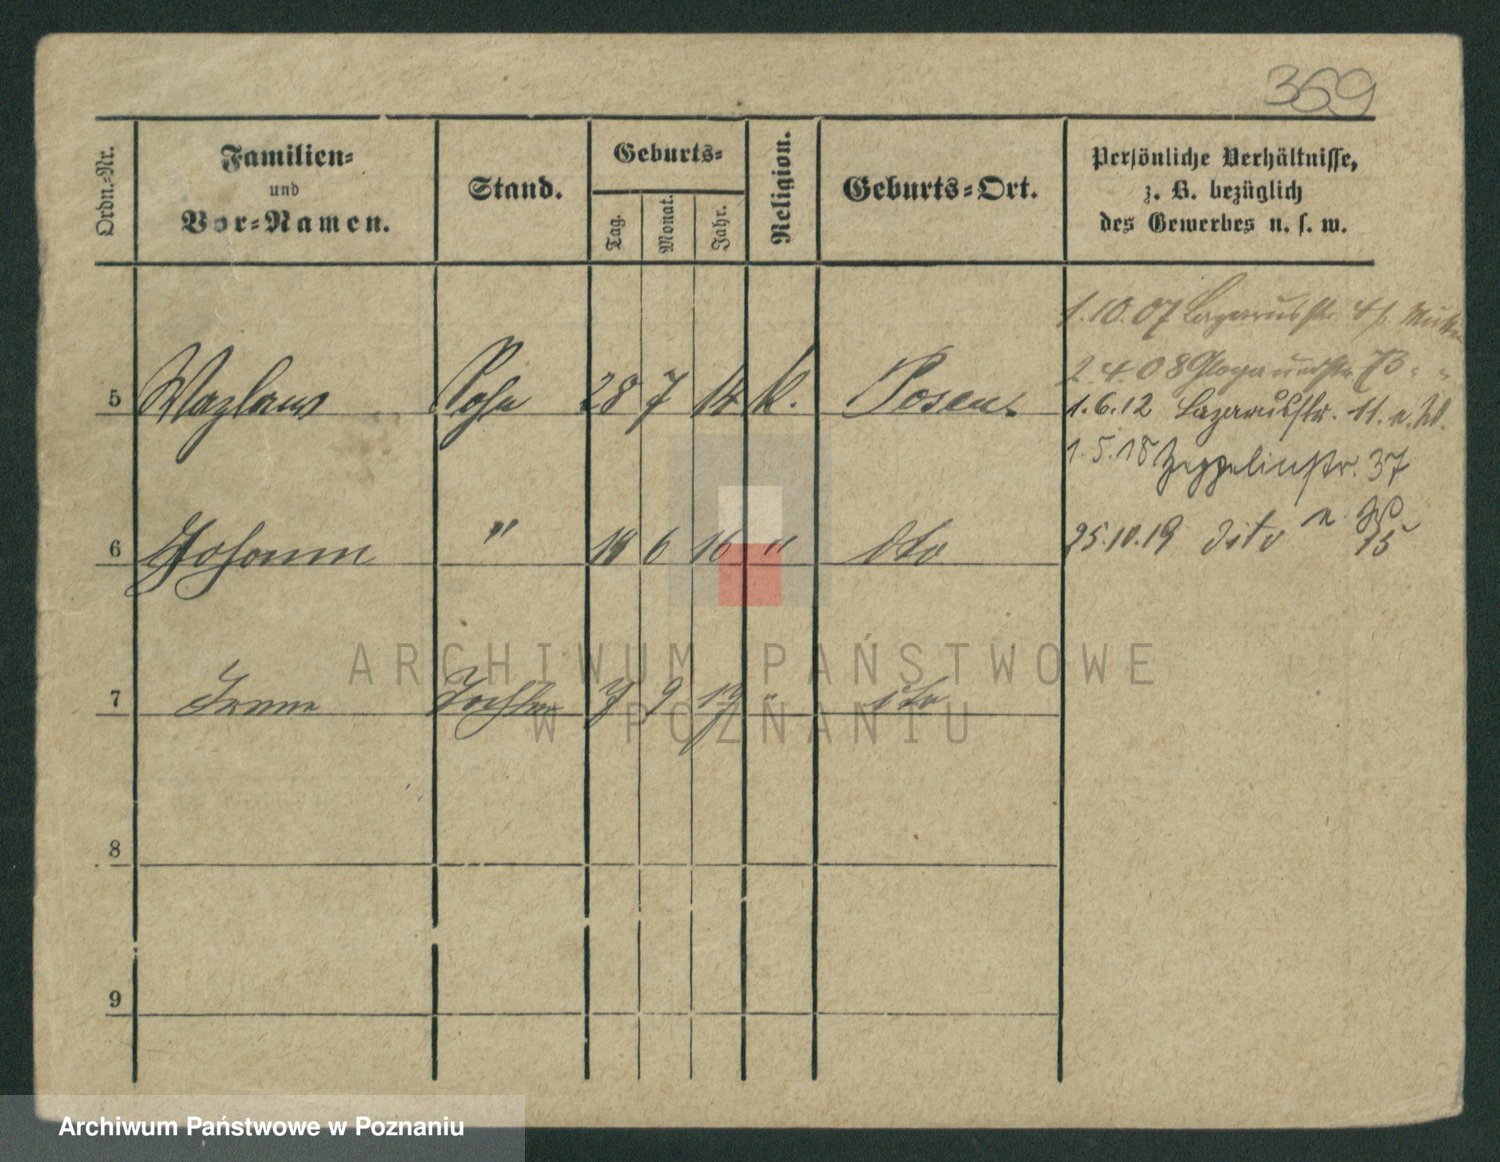 369
Ordn.-Nr.
Familien-
und
Vor-Namen.
Stand.
Geburts-
Tag.
Monat.
Jahr.
Religion.
Geburts-Ort.
Persönliche Verhältnisse,
z. B. bezüglich
des Gewerbes u. s. w.
1.10.07 Lazarusstr.
2.4.08 Glogauerstr. 73 " "
5 Wazlaw Sohn 28 7 14 k. Posen
1.6.12 Lazarusstr. 11.
1.5.18 Zeppelinstr. 37
6 Johann " 18 6 16 " dto
25.10.19 dito 15
7 Irene Tochter 9 19 " dto
8
9
ARCHIWUM PAŃSTWOWE
W POZNANIU
Archiwum Państwowe w Poznaniu